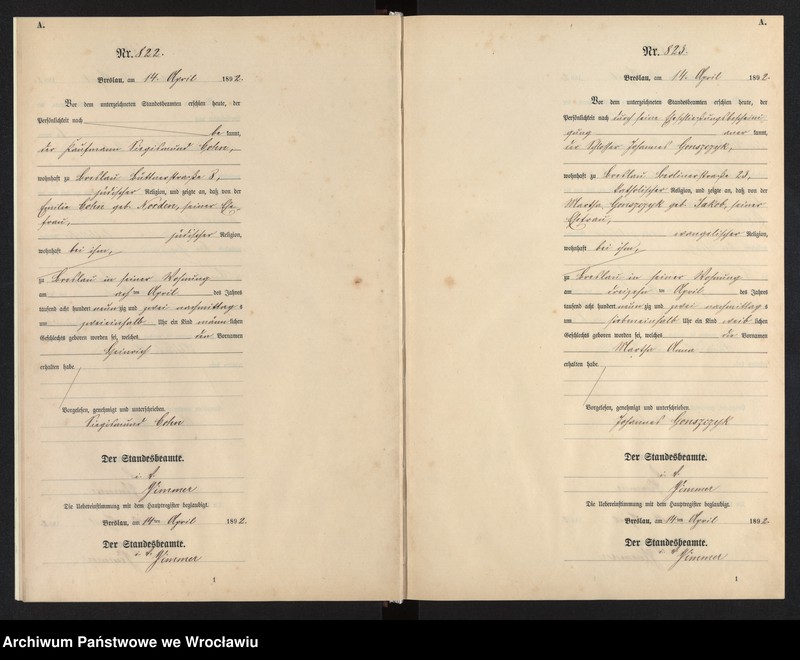 A.
Nr. 822.
Breslau, am 14. April 1892.
Vor dem unterzeichneten Standesbeamten erschien heute, der
Persönlichkeit nach
be kannt,
der Kaufmann Siegismund Cohn,
wohnhaft zu Breslau Büttnerstraße 8,
jüdischer Religion, und zeigte an, daß von der
Emilie Cohn geb. Norden, seiner Ehe-
frau,
jüdischer Religion,
wohnhaft bei ihm,
zu Breslau in seiner Wohnung
am April des Jahres
tausend acht hundert neunzig und zwei nachmittags
um zweieinhalb Uhr ein Kind männlichen
Geschlechts geboren worden sei, welches den Vornamen
Heinrich
erhalten habe.
Vorgelesen, genehmigt und unterschrieben.
Siegismund Cohn
Der Standesbeamte.
Zimmer
Die Uebereinstimmung mit dem Hauptregister beglaubigt.
Breslau, am 14ten April 1892.
Der Standesbeamte.
Zimmer
1
A.
Nr. 823.
Breslau, am 14. April 1892.
Vor dem unterzeichneten Standesbeamten erschien heute, der
Persönlichkeit nach durch seine Eheschließungsbescheini-
gung aner kannt,
der Schlosser Johannes Gonszczyk,
wohnhaft zu Breslau Berlinerstraße 23,
katholischer Religion, und zeigte an, daß von der
Martha Gonszczyk geb. Jakob, seiner
Ehefrau,
evangelischer Religion,
wohnhaft bei ihm,
zu Breslau in seiner Wohnung
am dreizehnten April des Jahres
tausend acht hundert neunzig und zwei nachmittags
um siebeneinhalb Uhr ein Kind weiblichen
Geschlechts geboren worden sei, welches die Vornamen
Martha Anna
erhalten habe.
Vorgelesen, genehmigt und unterschrieben.
Johannes Gonszczyk
Der Standesbeamte.
Zimmer
Die Uebereinstimmung mit dem Hauptregister beglaubigt.
Breslau, am 14ten April 1892.
Der Standesbeamte.
Zimmer
1
Archiwum Państwowe we Wrocławiu